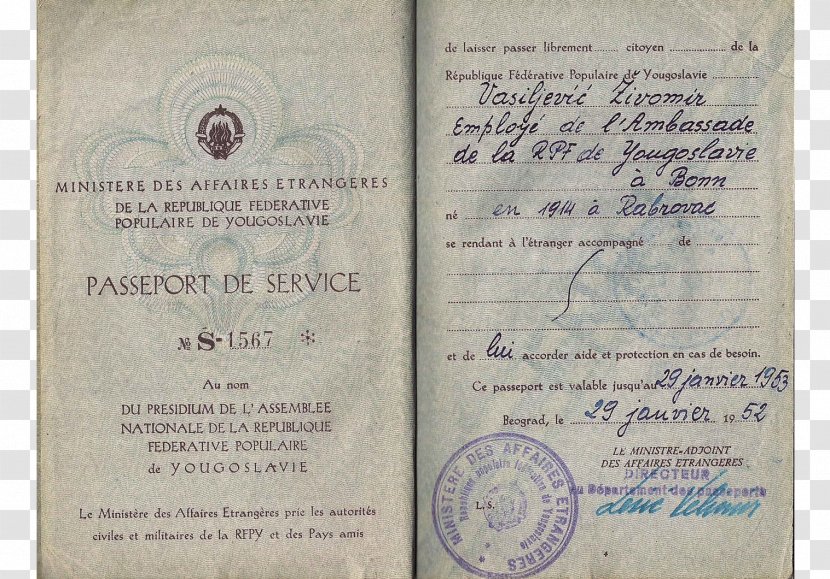 MINISTERE DES AFFAIRES ETRANGERES
DE LA REPUBLIQUE FEDERATIVE
POPULAIRE DE YOUGOSLAVIE
PASSEPORT DE SERVICE
№ S-1567 *
Au nom
DU PRESIDIUM DE L'ASSEMBLEE
NATIONALE DE LA REPUBLIQUE
FEDERATIVE POPULAIRE
de YOUGOSLAVIE
Le Ministère des Affaires Etrangères prie les autorités
civiles et militaires de la RFPY et des Pays amis
de laisser passer librement........ citoyen ................ de la
République Fédérative Populaire de Yougoslavie
Vasiljević Živomir
Employé de l'Ambassade
de la RPF de Yougoslavie
à Bonn
né en 1914 à Rabrovac
se rendant à l'étranger accompagné ........ de
et de lui accorder aide et protection en cas de besoin.
Ce passeport est valable jusqu'au 29 janvier 1953
Beograd, le 29 janvier 1952
LE MINISTRE-ADJOINT
DES AFFAIRES ETRANGERES
DIRECTEUR
du Département des passeports
L. S.
MINISTÈRE DES AFFAIRES ETRANGÈRES
République populaire fédérative de Yougoslavie